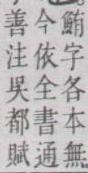 鮪字各本無
今依全書通
善注吳都賦